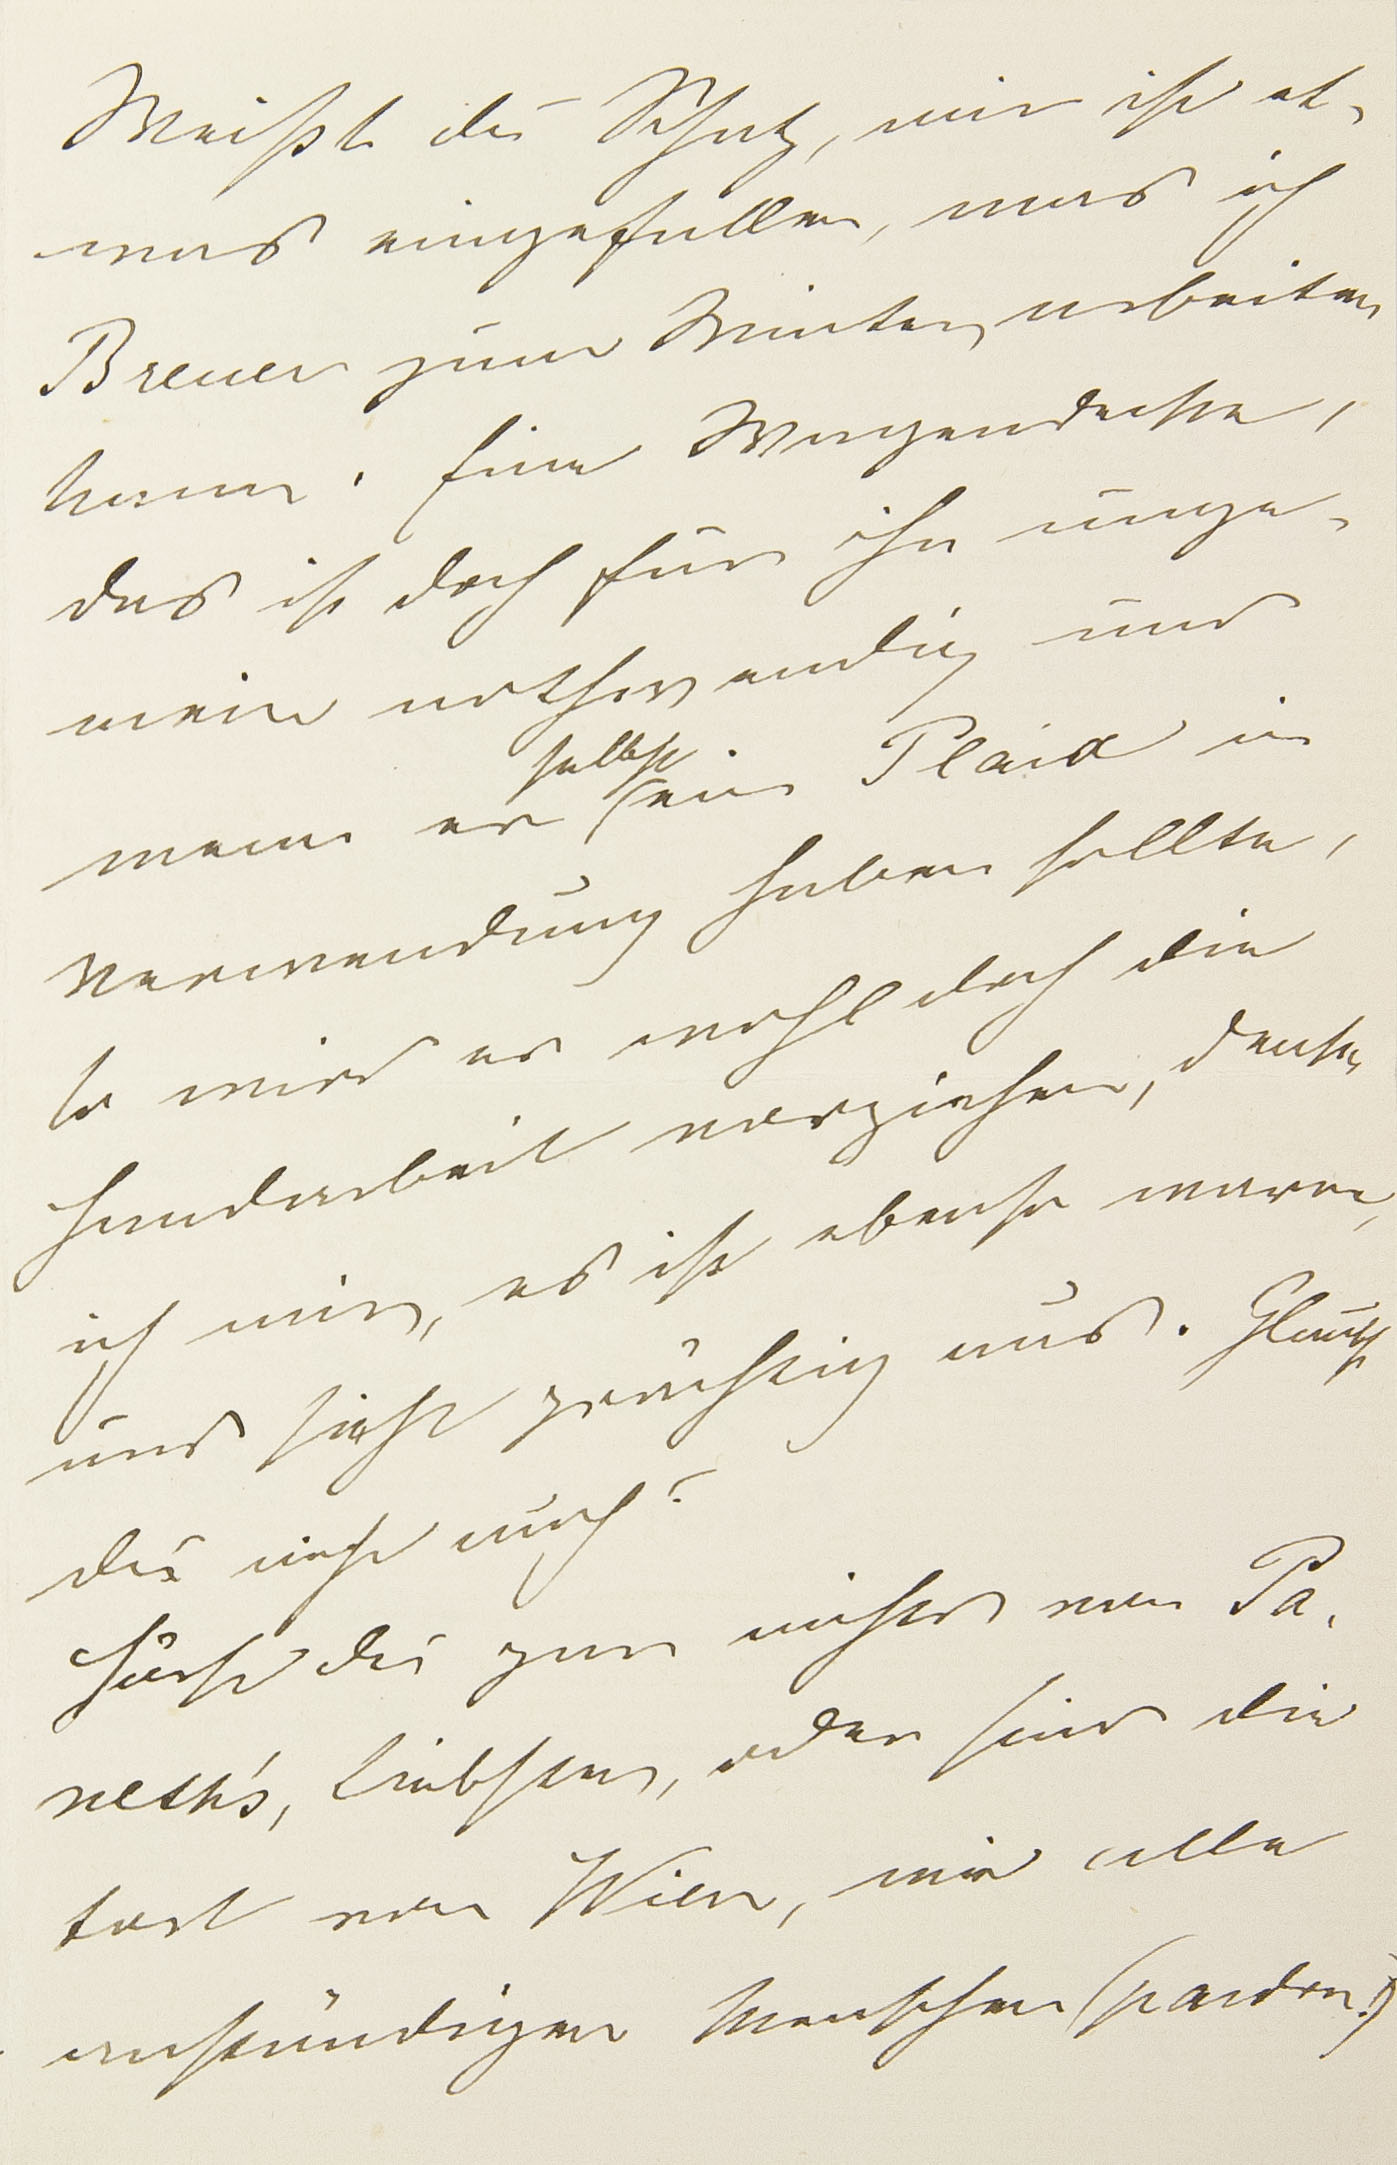 Weißt du Schatz, mir ist et-
was eingefallen, was ich
Breuer zum Winter arbeiten
kann. Eine Wagendecke,
das ist doch für ihn unge-
mein nothwendig und
wenn er selbst ein Plaid in
Verwendung haben sollte,
so wird er wohl doch die
Handarbeit vorziehen, denke
ich mir, es ist ebenso warm,
und sieht prächtig aus. Glaubst
du nicht auch?
Hörst du gar nichts von Pa-
neth's, Liebster, oder sind die
fort von Wien, wie alle
anständigen Menschen (pardon!)